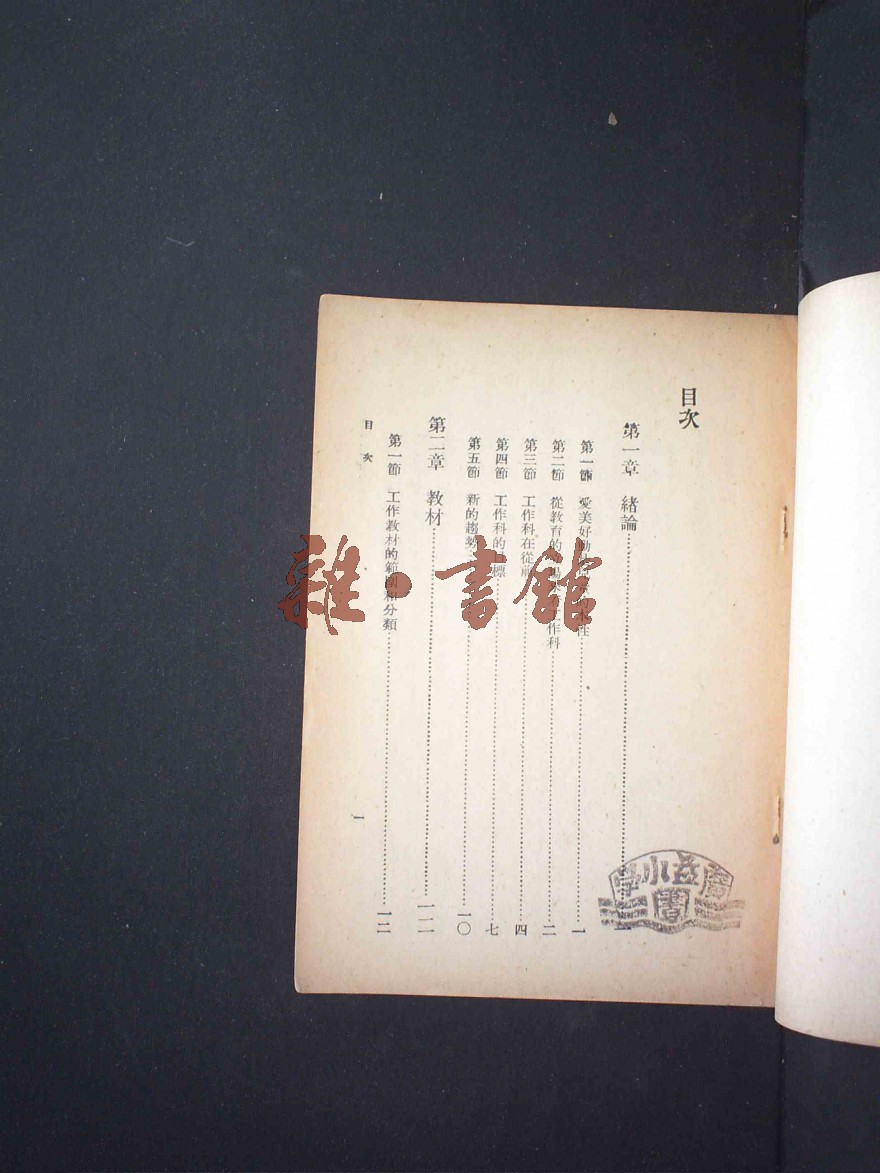 目次
第一章 緒論
第一節 愛美好動 的本性 一
第二節 從教育的 工作科 二
第三節 工作科在從前 四
第四節 工作科的目標 七
第五節 新的趨勢 一〇
第二章 教材 一二
第一節 工作教材的範圍和分類 一二
目次
一
雜·書館
廣益小學
圖